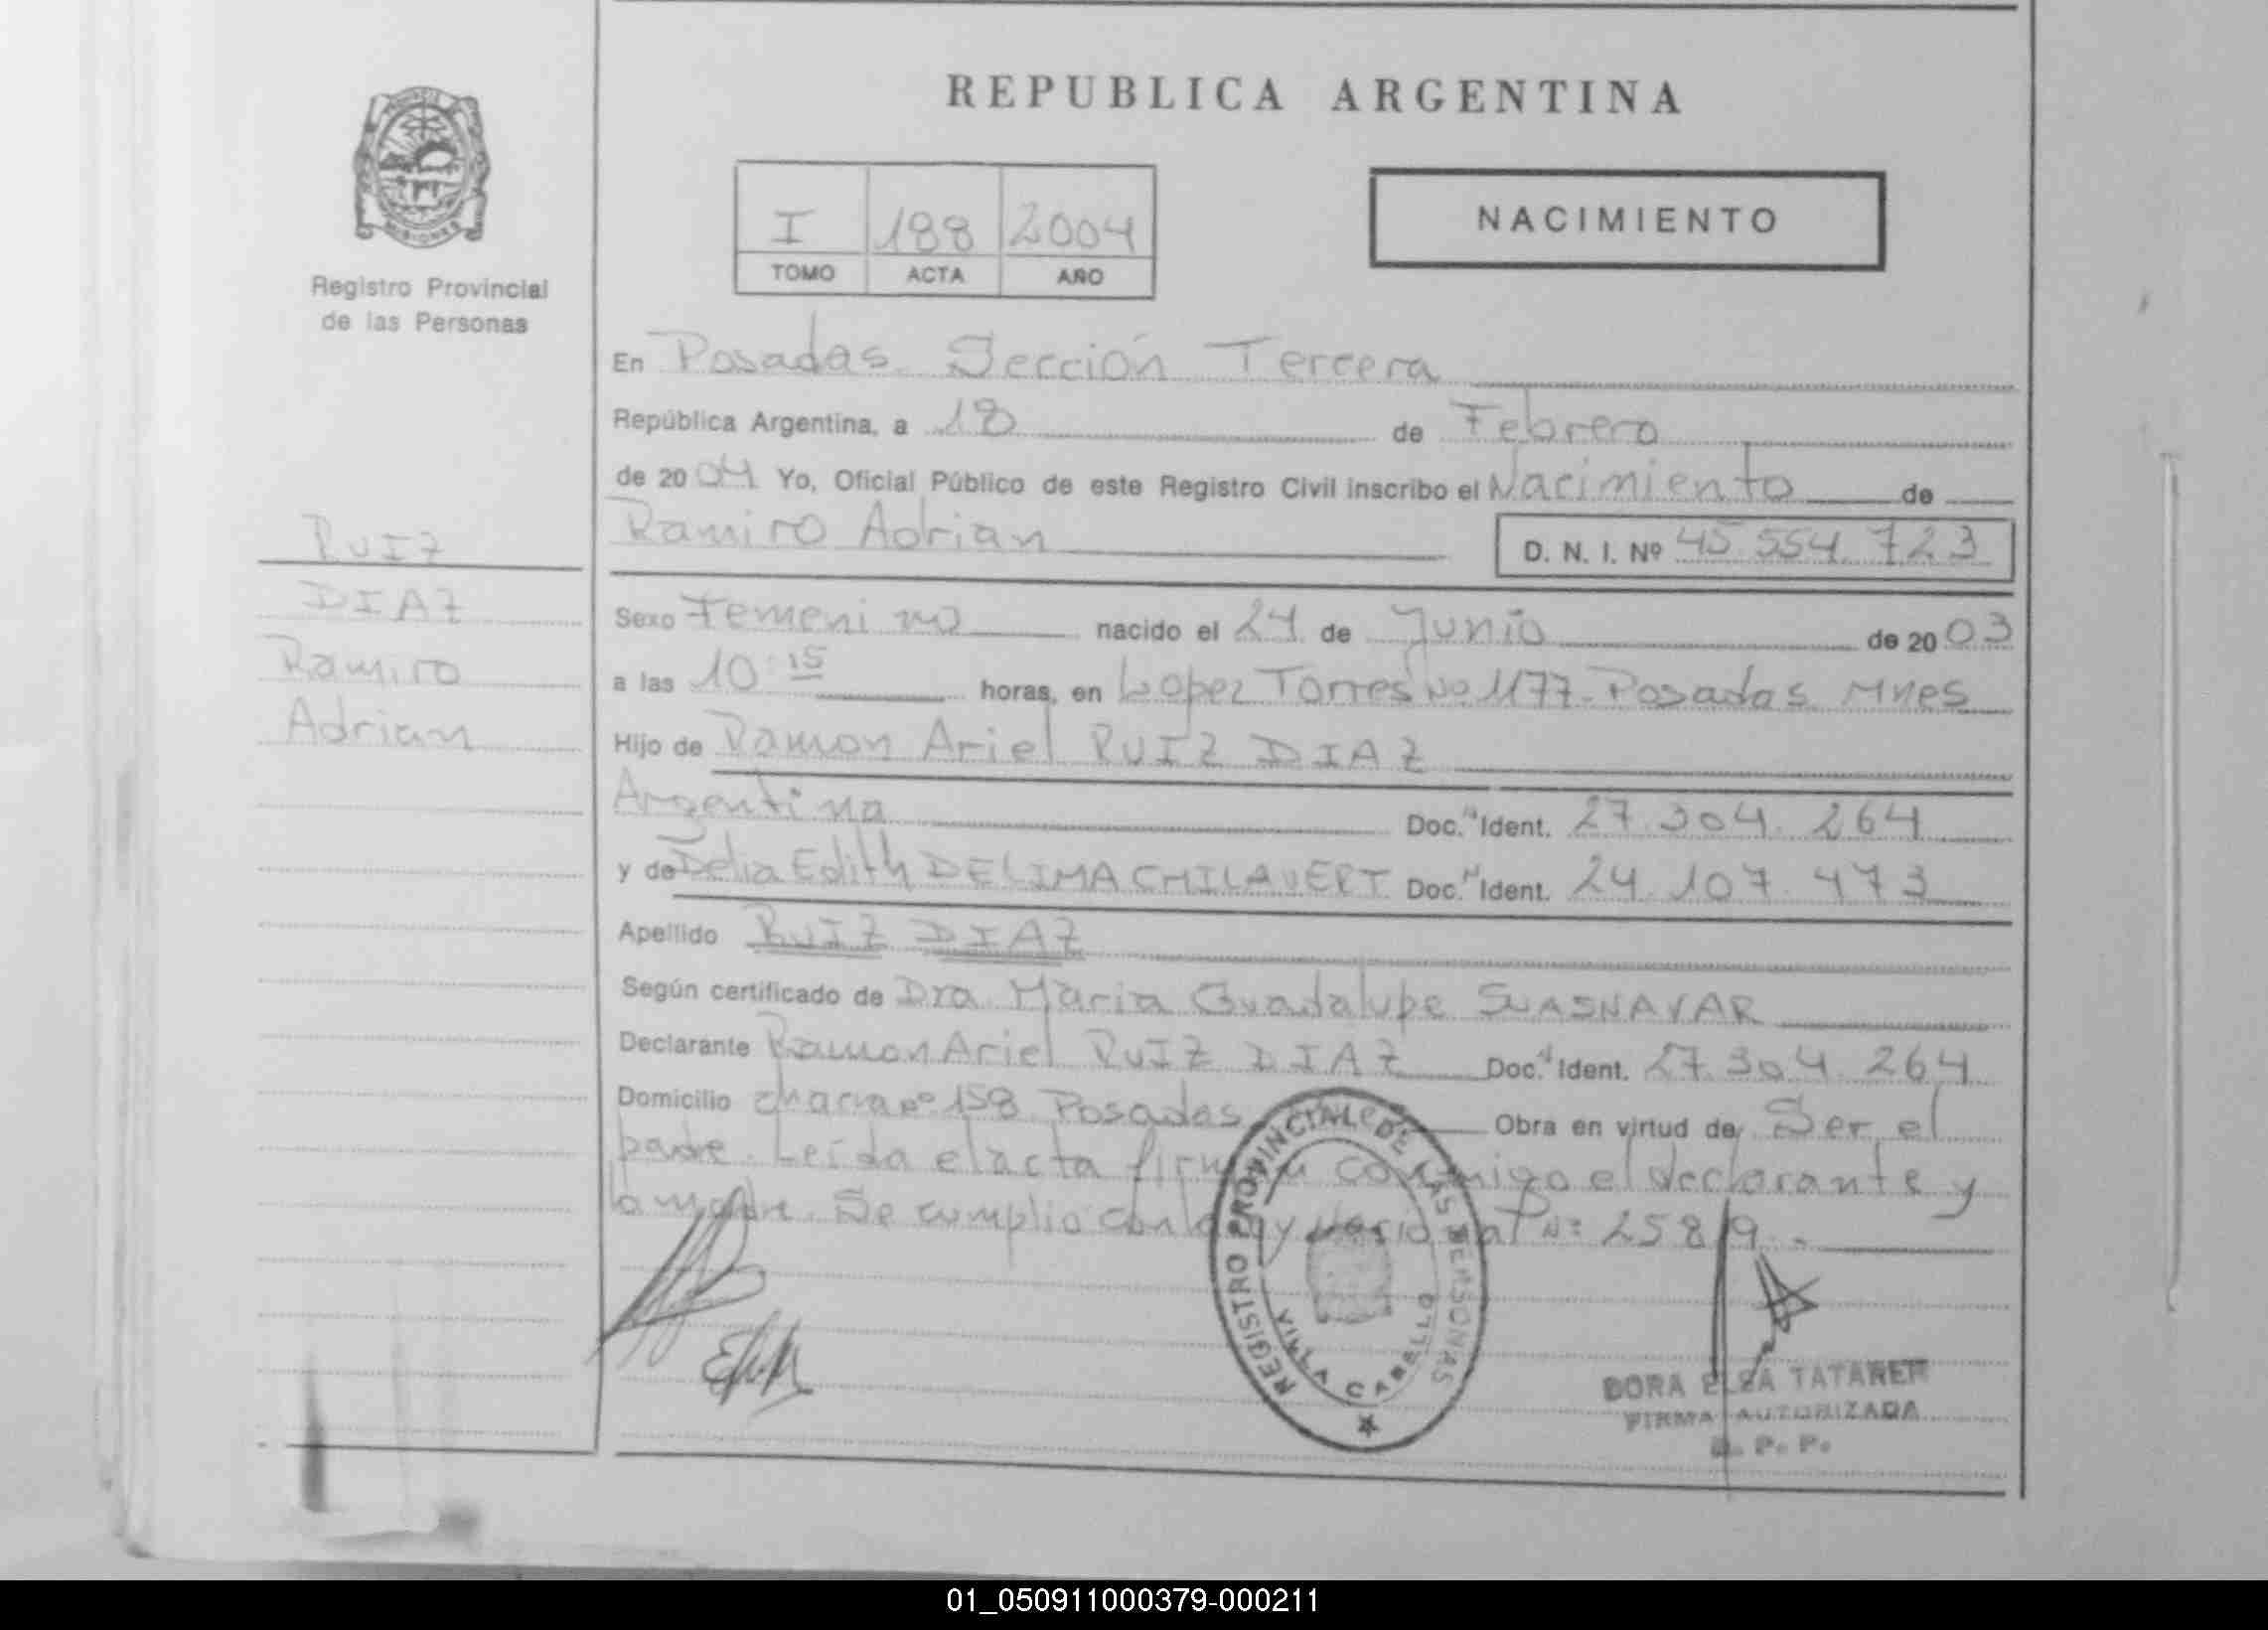 REPUBLICA ARGENTINA
MISIONES
Registro Provincial
de las Personas
I 188 2004
TOMO ACTA AÑO
NACIMIENTO
En Posadas Sección Tercera
República Argentina, a 18 de Febrero
de 2004 Yo, Oficial Público de este Registro Civil inscribo el Nacimiento de
Ramiro Adrian D. N. I. Nº 45 554 723
RUIZ
DIAZ
Ramiro
Adrian
Sexo Femenino nacido el 24 de Junio de 2003
a las 10:15 horas, en Lopez Torres No 1177-Posadas Mnes
Hijo de Ramon Ariel RUIZ DIAZ
Argentina Doc. Ident. 27.304.264
y de Delia Edith DELIMA CHILAVERT Doc. Ident. 24.107.473
Apellido RUIZ DIAZ
Según certificado de Dra. Maria Guadalupe SUASNAVAR
Declarante Ramon Ariel RUIZ DIAZ Doc. Ident. 27.304.264
Domicilio chacra nº 158 Posadas Obra en virtud de Ser el
padre. Leída el acta firma conmigo el declarante y
la madre. Se cumplio con ley Nacional Nº: 25819.-
REGISTRO PROVINCIAL DE LAS PERSONAS
VILLA CABELLO
DORA ELSA TATAREN
FIRMA AUTORIZADA
R. P. P.
01_050911000379-000211